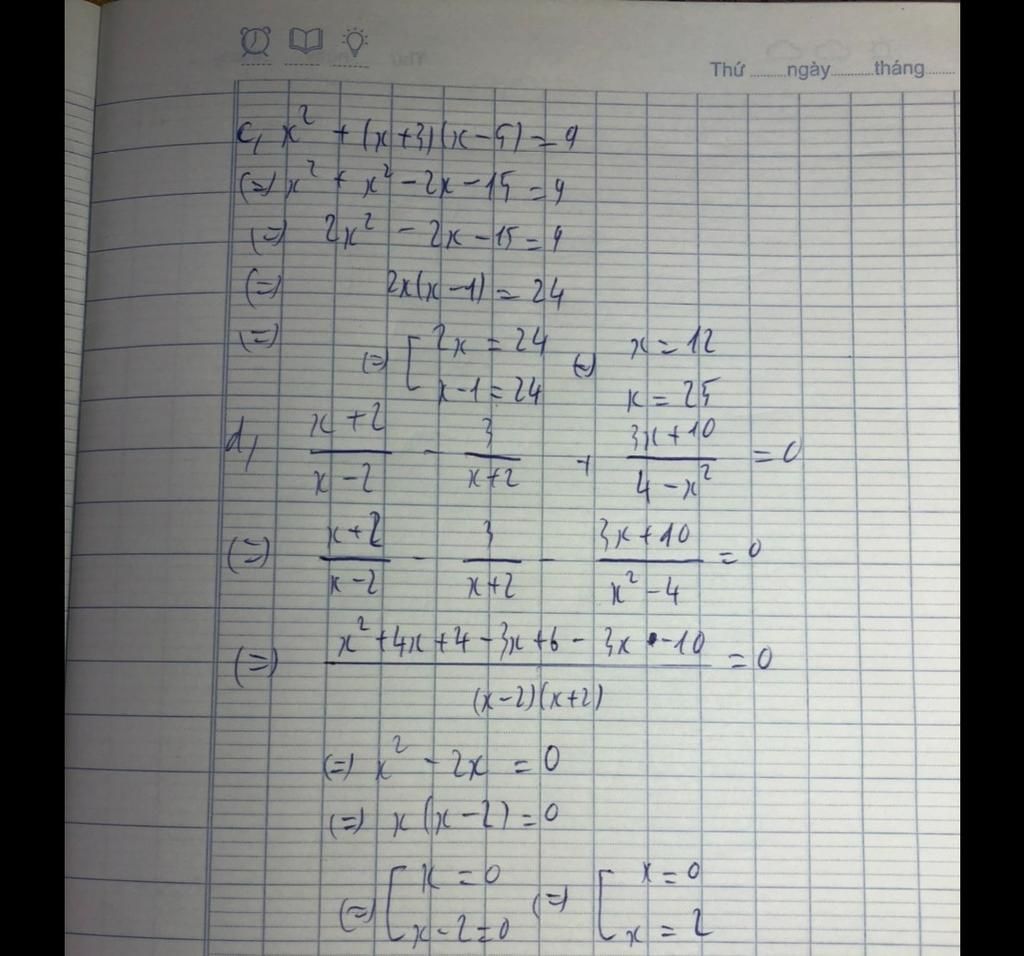 Thứ ........ngày...........tháng........
c, x² + (x+3)(x-5) = 9
(=) x² + x² - 2x - 15 = 9
(=) 2x² - 2x - 15 = 9
(=) 2x(x-1) = 24
(=)
(=) [ 2x = 24 (=) x = 12
x-1 = 24 x = 25
d, (x+2)/(x-2) - 3/(x+2) + (3x+10)/(4-x²) = 0
(=) (x+2)/(x-2) - 3/(x+2) - (3x+10)/(x²-4) = 0
(=) (x²+4x+4-3x+6-3x-10)/((x-2)(x+2)) = 0
(=) x² - 2x = 0
(=) x(x-2) = 0
(=) [ x = 0 (=) [ x = 0
x-2=0 x = 2